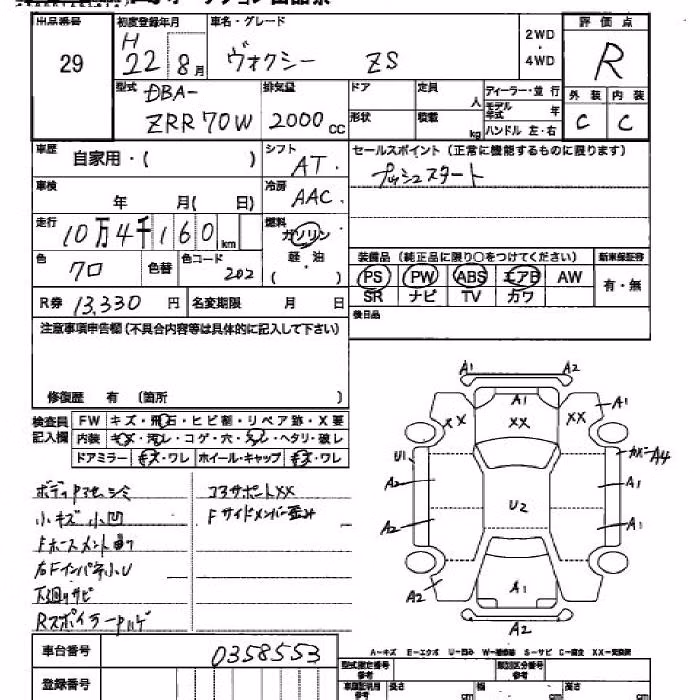 出品番号
29
初度登録年月
H 22 8月
車名・グレード
ヴォクシー ZS
2WD
・
4WD
評価点
R
外装 内装
C C
型式 DBA-
ZRR70W
排気量
2000 cc
ドア
定員 人
ディーラー・並行
形状
積載 kg
モデル年式 年
ハンドル 左・右
車歴 自家用・( )
シフト AT
セールスポイント(正常に機能するものに限ります)
プッシュスタート
車検 年 月( 日)
冷房 AAC
走行 10万4千160km
燃料 ガソリン
軽・油
( ・ )
色 クロ 色替
色コード 202
装備品(純正品に限り○をつけてください)
新車保証書
PS PW ABS エアB AW
有・無
SR ナビ TV カワ
R券 13,330 円
名変期限 月 日
後日品
注意事項申告欄(不具合内容等は具体的に記入して下さい)
修復歴 有 (箇所 )
検査員記入欄
FW キズ・飛石・ヒビ割・リペア跡・X要
内装 キズ・汚レ・コゲ・穴・スレ・ヘタリ・破レ
ドアミラー キズ・ワレ ホイール・キャップ キズ・ワレ
小キズ 小凹
コアサポートXX
Fサイドメンバー歪み
右Fインパネ小U
下廻りサビ
RスポイラーPハゲ
A1 A2
A1
XX XX XX A1
U1 カバーA4
A2 A1
U2
A2 A1
A1
A2
A2
A-キズ E-エクボ U-凹み W-補修跡 S-サビ C-腐食 XX-交換済
車台番号 0358553
登録番号
型式指定番号
類別区分番号
車庫証明用参考
長さ cm
幅 cm
高さ cm